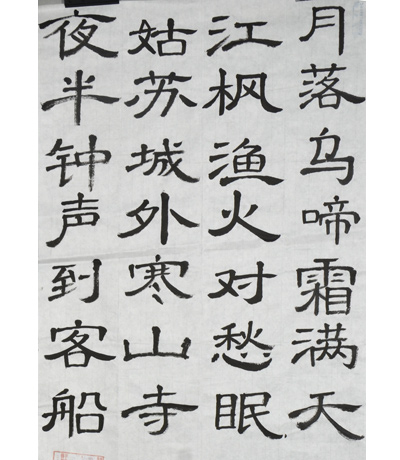 月落乌啼霜满天
江枫渔火对愁眠
姑苏城外寒山寺
夜半钟声到客船